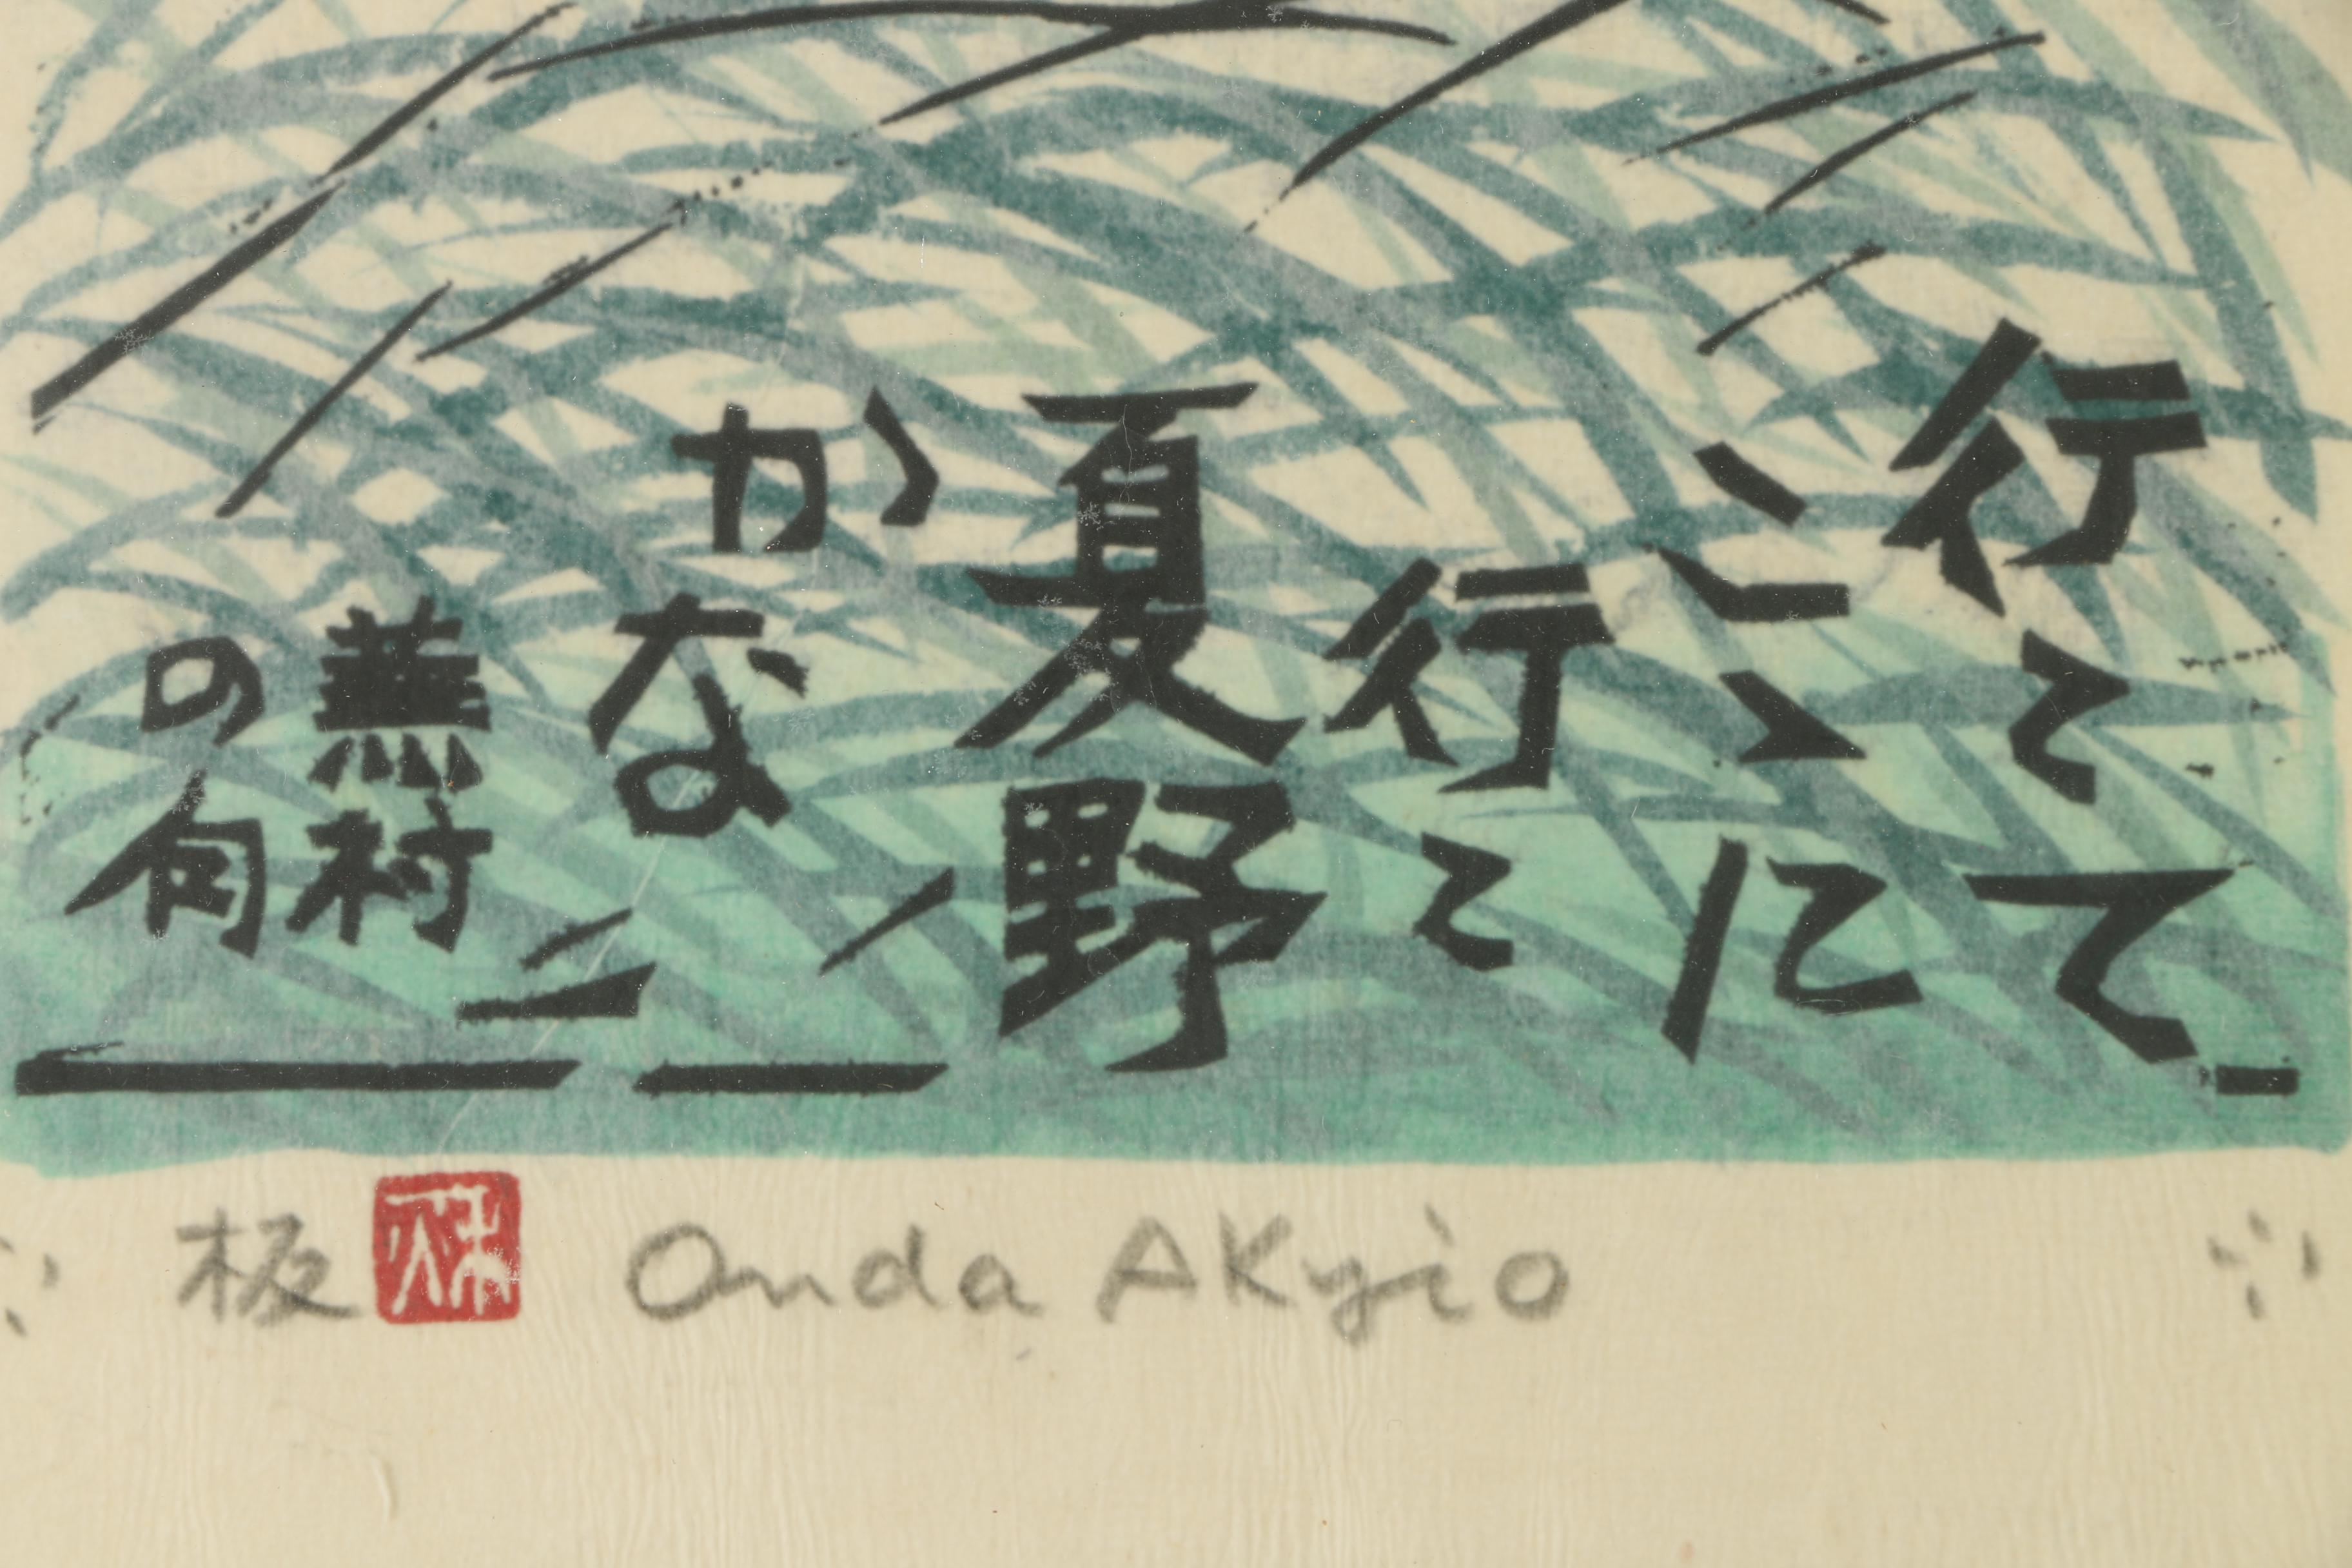 行々て
こゝに
行々
夏野
かな
蕪村
の句
板 Onda AKyio